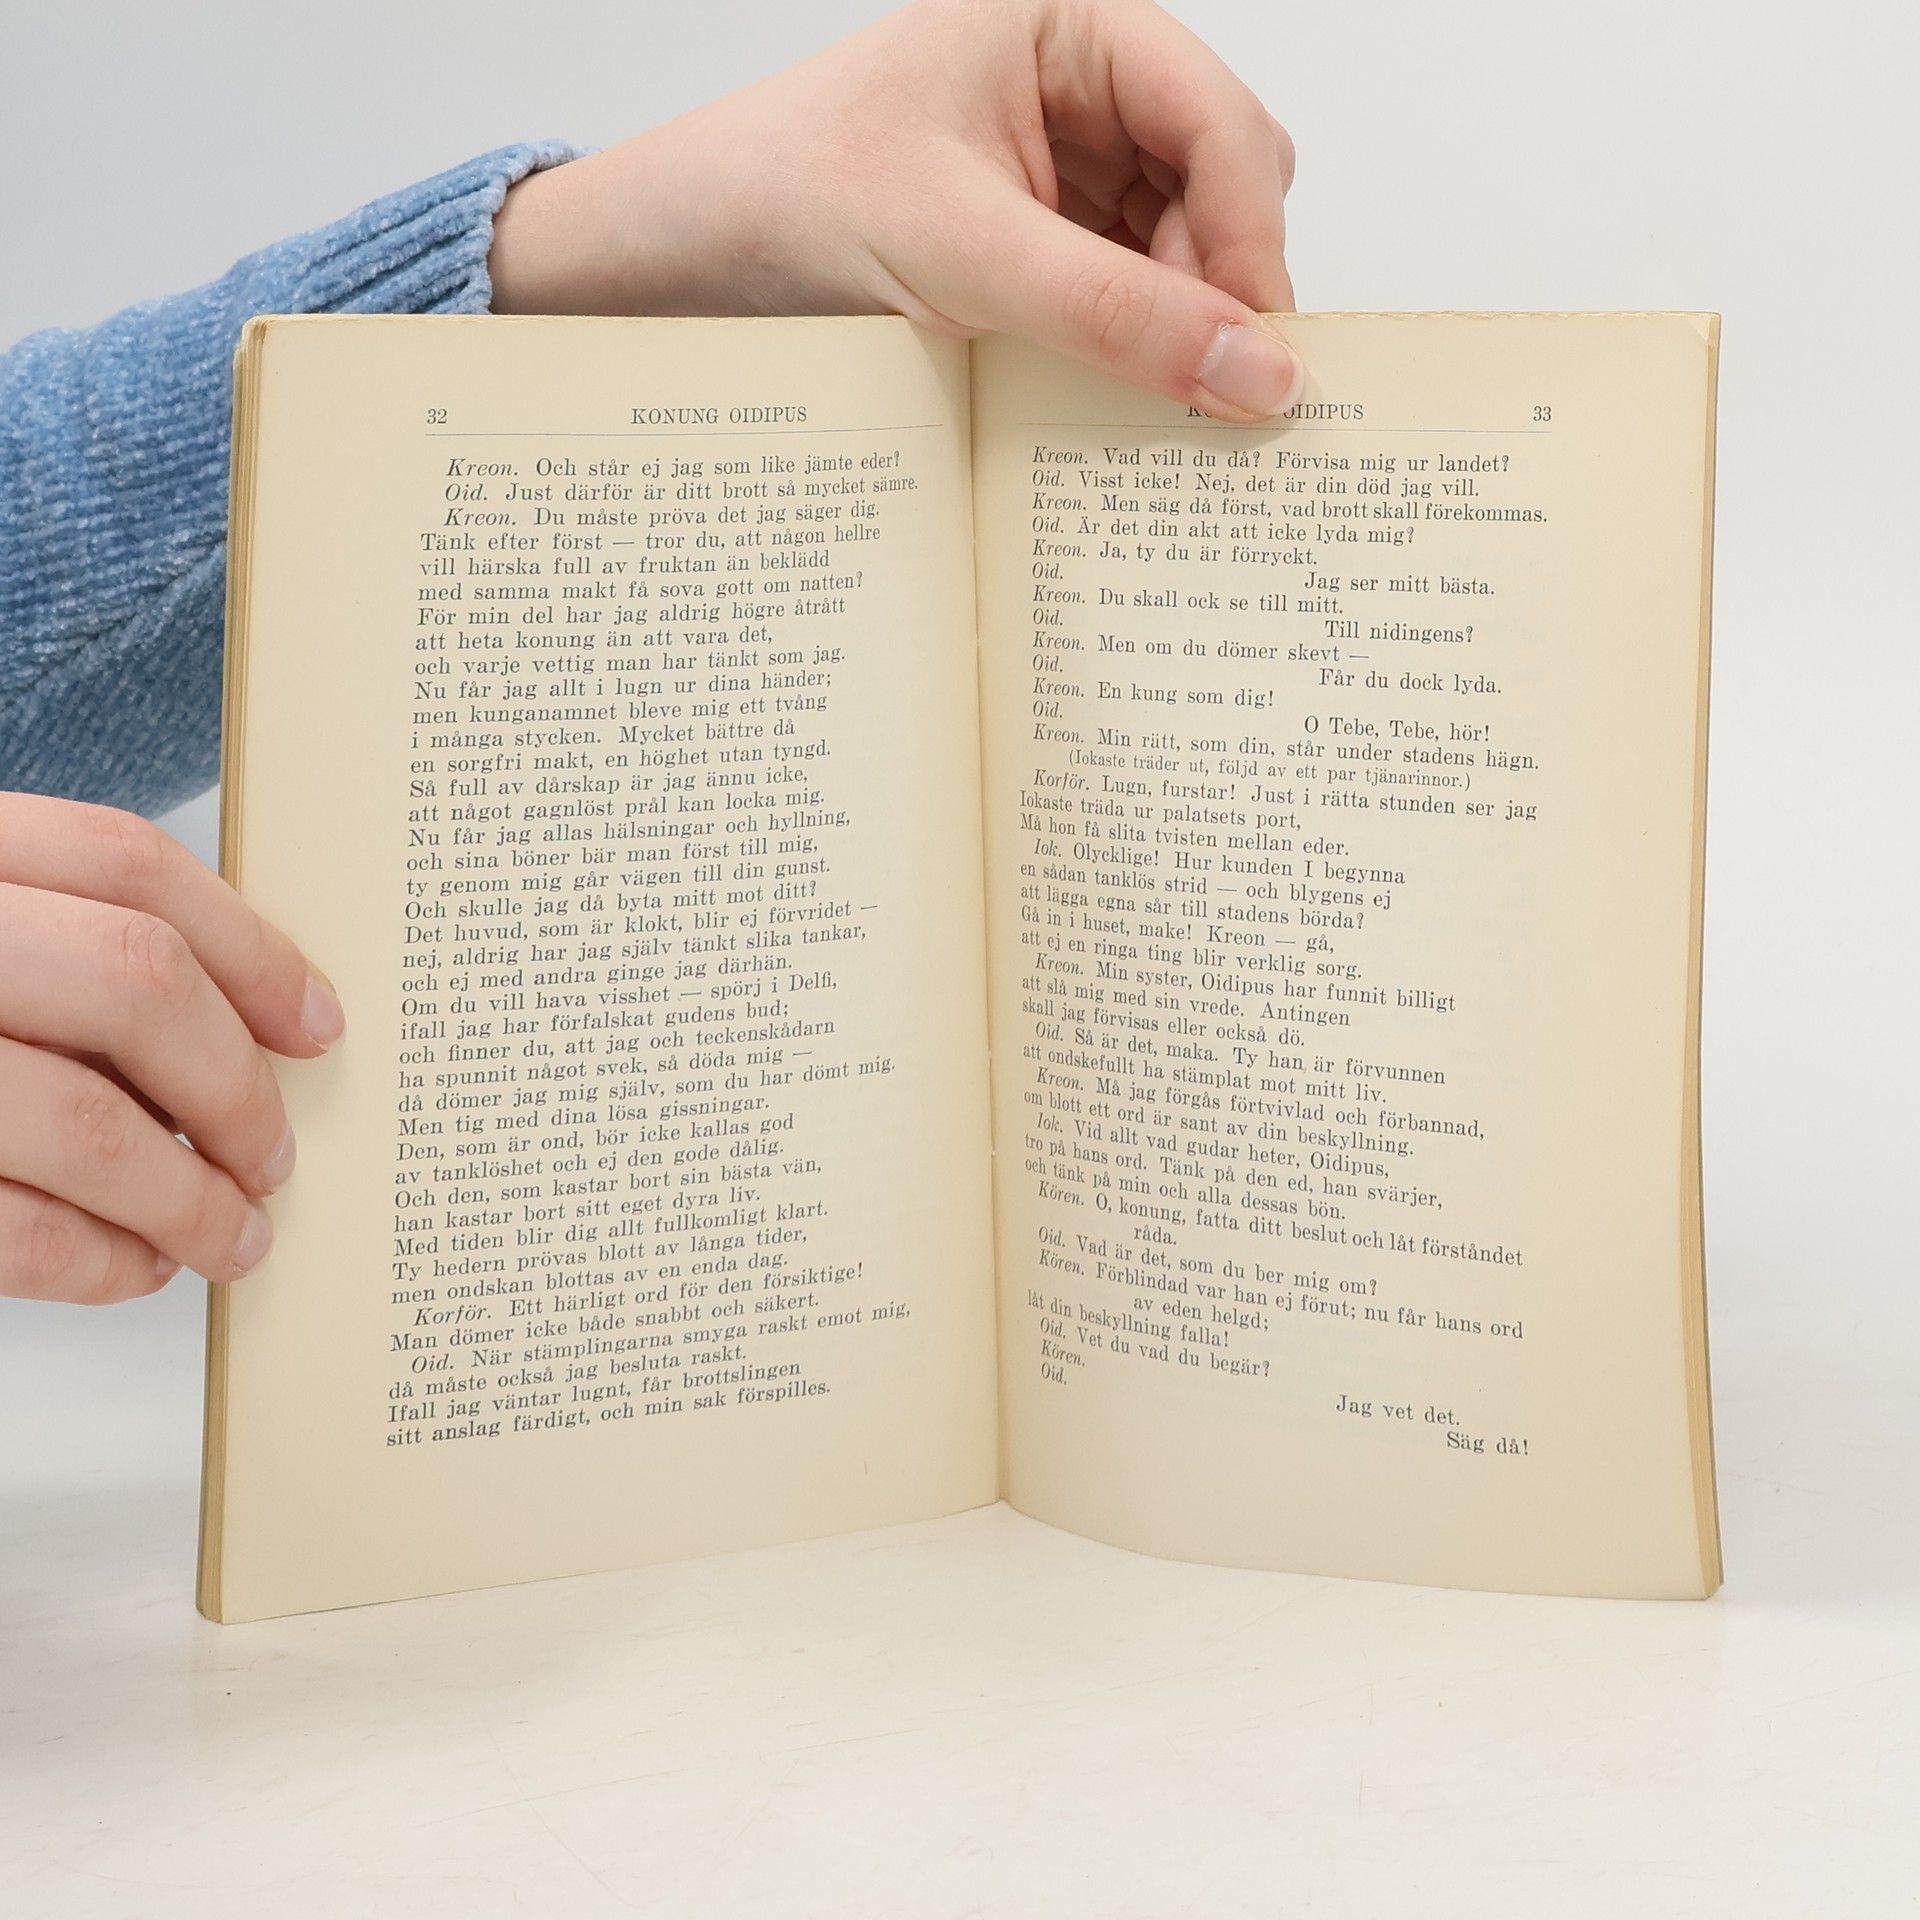 32 KONUNG OIDIPUS
Kreon. Och står ej jag som like jämte eder?
Oid. Just därför är ditt brott så mycket sämre.
Kreon. Du måste pröva det jag säger dig.
Tänk efter först — tror du, att någon hellre
vill härska full av fruktan än beklädd
med samma makt få sova gott om natten?
För min del har jag aldrig högre åtrått
att heta konung än att vara det,
och varje vettig man har tänkt som jag.
Nu får jag allt i lugn ur dina händer;
men kunganamnet bleve mig ett tvång
i många stycken. Mycket bättre då
en sorgfri makt, en höghet utan tyngd.
Så full av dårskap är jag ännu icke,
att något gagnlöst prål kan locka mig.
Nu får jag allas hälsningar och hyllning,
och sina böner bär man först till mig,
ty genom mig går vägen till din gunst.
Och skulle jag då byta mitt mot ditt?
Det huvud, som är klokt, blir ej förvridet —
nej, aldrig har jag själv tänkt slika tankar,
och ej med andra ginge jag därhän.
Om du vill hava visshet — spörj i Delfi,
ifall jag har förfalskat gudens bud;
och finner du, att jag och teckenskådarn
ha spunnit något svek, så döda mig —
då dömer jag mig själv, som du har dömt mig.
Men tig med dina lösa gissningar.
Den, som är ond, bör icke kallas god
av tanklöshet och ej den gode dålig.
Och den, som kastar bort sin bästa vän,
han kastar bort sitt eget dyra liv.
Med tiden blir dig allt fullkomligt klart.
Ty hedern prövas blott av långa tider,
men ondskan blottas av en enda dag.
Korför. Ett härligt ord för den försiktige!
Man dömer icke både snabbt och säkert.
Oid. När stämplingarna smyga raskt emot mig,
då måste också jag besluta raskt.
Ifall jag väntar lugnt, får brottslingen
sitt anslag färdigt, och min sak förspilles.
OIDIPUS 33
Kreon. Vad vill du då? Förvisa mig ur landet?
Oid. Visst icke! Nej, det är din död jag vill.
Kreon. Men säg då först, vad brott skall förekommas.
Oid. Är det din akt att icke lyda mig?
Kreon. Ja, ty du är förryckt.
Oid. Jag ser mitt bästa.
Kreon. Du skall ock se till mitt.
Oid. Till nidingens?
Kreon. Men om du dömer skevt —
Oid. Får du dock lyda.
Kreon. En kung som dig!
Oid. O Tebe, Tebe, hör!
Kreon. Min rätt, som din, står under stadens hägn.
(Iokaste träder ut, följd av ett par tjänarinnor.)
Korför. Lugn, furstar! Just i rätta stunden ser jag
Iokaste träda ur palatsets port,
Må hon få slita tvisten mellan eder.
Iok. Olycklige! Hur kunden I begynna
en sådan tanklös strid — och blygens ej
att lägga egna sår till stadens börda?
Gå in i huset, make! Kreon — gå,
att ej en ringa ting blir verklig sorg.
Kreon. Min syster, Oidipus har funnit billigt
att slå mig med sin vrede. Antingen
skall jag förvisas eller också dö.
Oid. Så är det, maka. Ty han är förvunnen
att ondskefullt ha stämplat mot mitt liv.
Kreon. Må jag förgås förtvivlad och förbannad,
om blott ett ord är sant av din beskyllning.
Iok. Vid allt vad gudar heter, Oidipus,
tro på hans ord. Tänk på den ed, han svärjer,
och tänk på min och alla dessas bön.
Kören. O, konung, fatta ditt beslut och låt förståndet
råda.
Oid. Vad är det, som du ber mig om?
Kören. Förblindad var han ej förut; nu får hans ord
av eden helgd;
låt din beskyllning falla!
Oid. Vet du vad du begär?
Kören. Jag vet det.
Oid. Säg då!